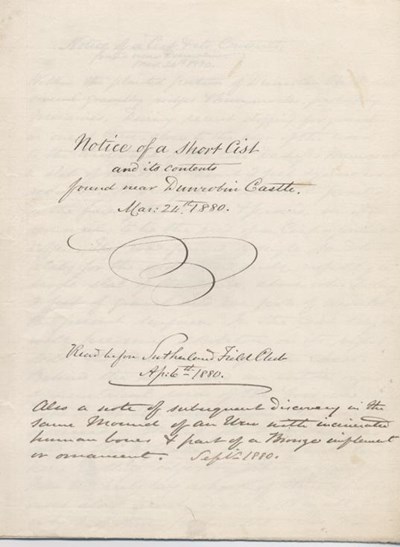 Notice of a Short Cist
and its contents
found near Dunrobin Castle.
Mar: 24th 1880.
Read before Sutherland Field Club
Ap: 6th 1880.
Also a note of subsequent discovery in the
same Mound of an Urn with incinerated
human bones & part of a Bronze implement
or ornament. Septr 1880.